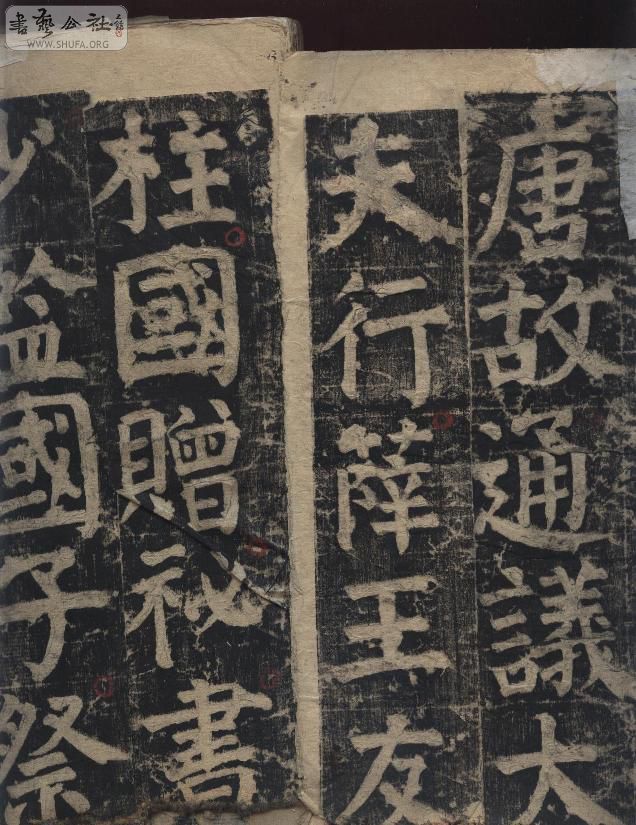 唐故通議大
夫行薛王友
柱國贈祕書
少監國子祭
書藝公社
WWW.SHUFA.ORG